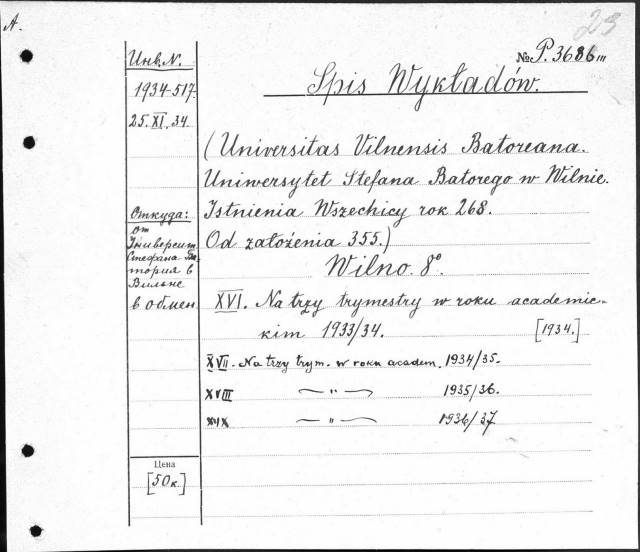 A.
23
№ P. 3686 III
Spis Wykładów.
Инв. N.
1934-517.
25.XI.34
(Universitas Vilnensis Batoreana.
Uniwersytet Stefana Batorego w Wilnie.
Istnienia Wszechicy rok 268.
Od założenia 355.)
Wilno. 8°.
Откуда:
от
Университ.
Стефана Ба-
тория в
Вильне
в обмен
XVI. Na trzy trymestry w roku academic-
kim 1933/34. [1934.]
XVII. Na trzy trym. w roku academ. 1934/35.
XVIII — " — 1935/36.
XIX — " — 1936/37.
Цена
[50к.]